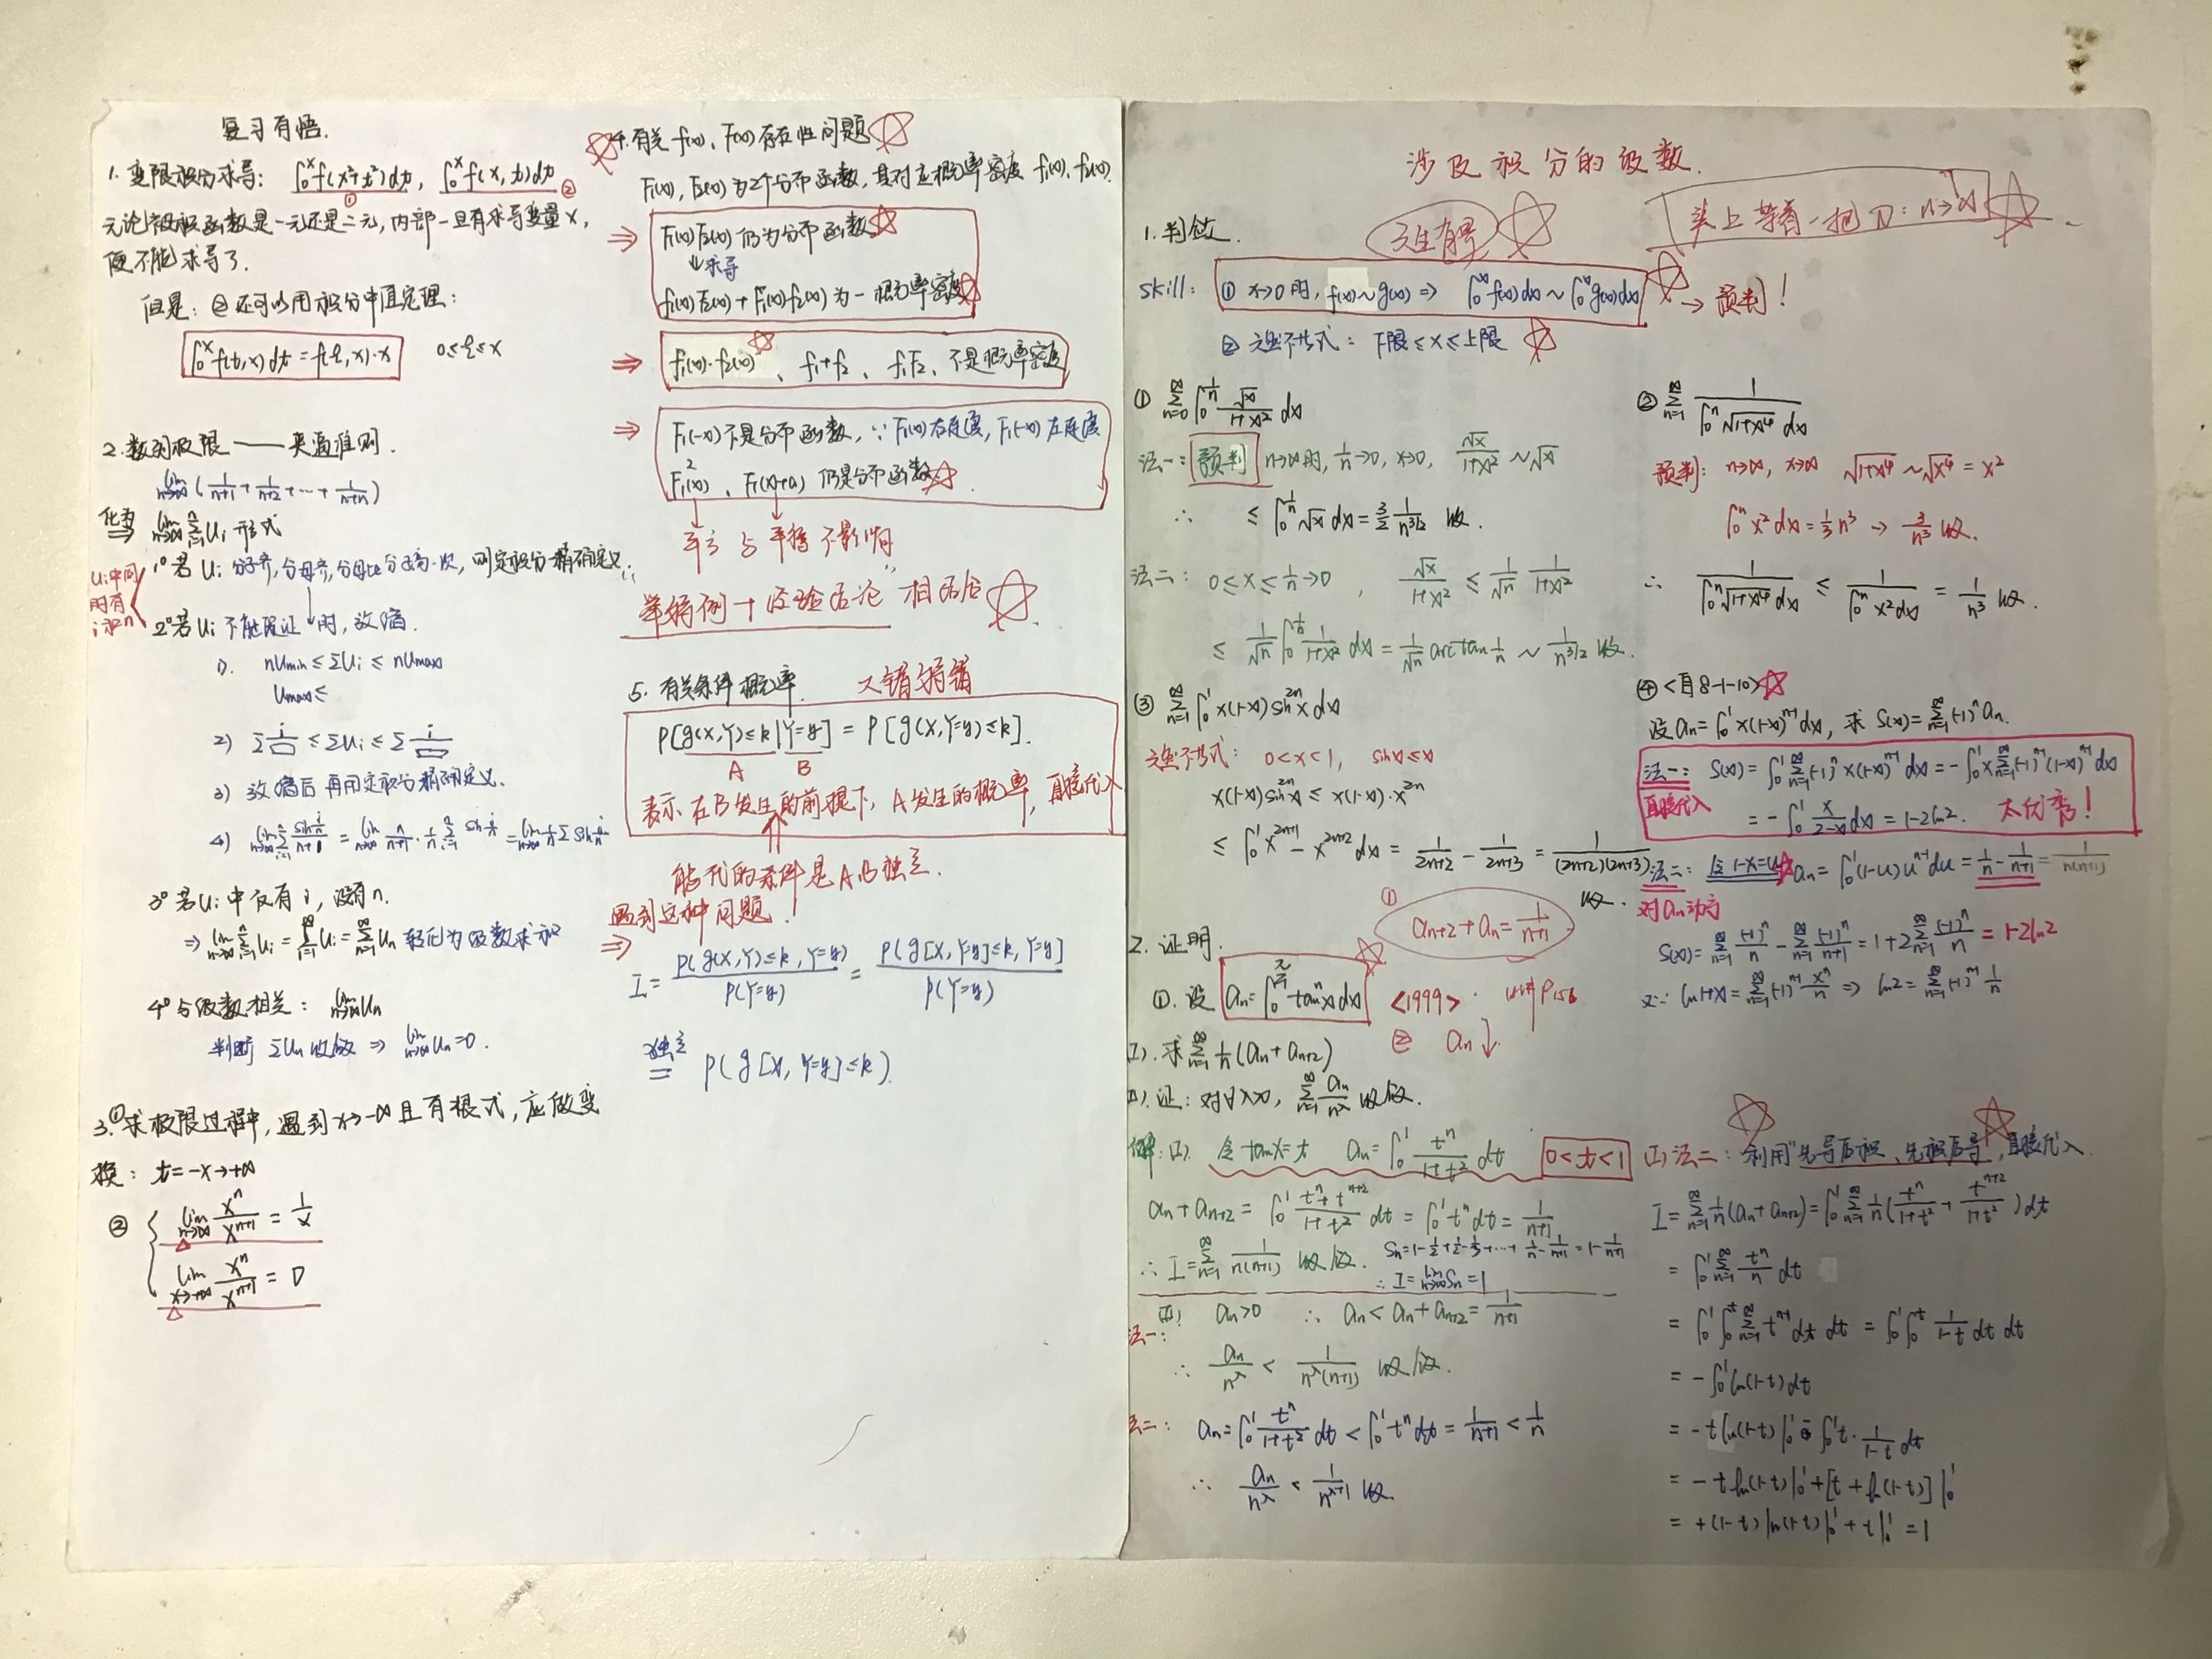 复习有悟.
1. 变限积分求导: ∫₀ˣf(x²+t²)dt, ∫₀ˣf(x,t)dt
① ②
无论被积函数是一元还是二元,内部一旦有求导变量x,
便不能求导了.
但是: ②还可以用积分中值定理:
∫₀ˣf(t,x)dt = f(ξ,x)·x 0≤ξ≤x
2. 数列极限 —— 夹逼准则.
lim n→∞ (1/(n+1) + 1/(n+2) + … + 1/(n+n))
化为⇒ lim n→∞ Σ(i=1→n) Ui 形式
Ui中同时有i和n
1° 若Ui 分子齐,分母齐,分母比分子高一次,则定积分精确定义;
2° 若Ui 不能保证↓时,放缩.
1). nUmin ≤ ΣUi ≤ nUmax
Umax≤
2) Σ i/□ ≤ ΣUi ≤ Σ i/□
3) 放缩后再用定积分精确定义.
4) lim n→∞ Σ(i=1→n) sin(i/n)/(n+1) = lim n→∞ n/(n+1) · 1/n Σ(i=1→n) sin(i/n) = lim n→∞ 1/n Σ sin(i/n)
3° 若Ui中仅有i,没有n.
⇒ lim n→∞ Σ(i=1→n) Ui = Σ(i=1→∞) Ui = Σ(n=1→∞) Un 转化为级数求和
4° 与级数相关: lim n→∞ Un
判断 ΣUn 收敛 ⇒ lim n→∞ Un = 0.
3. ①求极限过程中,遇到x→-∞且有根式,应做变
换: t=-x→+∞
② { lim n→∞ xⁿ/xⁿ⁺¹ = 1/x
lim x→+∞ xⁿ/xⁿ⁺¹ = 0
4. 有关f(x)、F(x)存在性问题
F₁(x), F₂(x)为2个分布函数,其对应概率密度 f₁(x), f₂(x).
⇒ F₁(x)F₂(x)仍为分布函数
↓求导
f₁(x)F₂(x) + F₁(x)f₂(x) 为一概率密度
⇒ f₁(x)·f₂(x)、f₁+f₂、f₁F₂、不是概率密度
⇒ F₁(-x)不是分布函数, ∵F₁(x)右连续, F₁(-x)左连续
F₁²(x)、F₁(x+a) 仍是分布函数.
平方与平移不影响
举特例+“经验结论”相结合
5. 有关条件概率. 又错/易错
P[g(X,Y)≤k|Y=y] = P[g(X,Y=y)≤k].
A B
表示在B发生的前提下, A发生的概率,直接代入
能代的条件是A、B独立.
遇到这种问题!
⇒ I = P(g(X,Y)≤k, Y=y)/P(Y=y) = P(g[X,Y=y]≤k, Y=y]/P(Y=y)
独立= P(g[X,Y=y]≤k).
涉及积分的级数.
头上举着一把刀: n→∞
1. 判敛.
skill: ① x→0时, f(x)~g(x) ⇒ ∫₀ˣf(x)dx ~ ∫₀ˣg(x)dx → 预判!
② 不等式: 下限≤x≤上限
① Σ(n=0→∞) ∫₀^(1/n) √x/(1+x²) dx
法一: 预判 n→∞时, 1/n→0, x→0, √x/(1+x²) ~ √x
∴ ≤ ∫₀^(1/n) √x dx = 3/2 1/n^(3/2) 收.
法二: 0≤x≤1/n→0, √x/(1+x²) ≤ 1/√n 1/(1+x²)
≤ 1/√n ∫₀^(1/n) 1/(1+x²) dx = 1/√n arctan 1/n ~ 1/n^(3/2) 收.
② Σ(n=1→∞) 1/∫₀ⁿ√(1+x⁴) dx
预判: n→∞, x→∞ √(1+x⁴) ~ √x⁴ = x²
∫₀ⁿ x²dx = 1/3 n³ → 3/n³ 收.
∴ 1/∫₀ⁿ√(1+x⁴)dx ≤ 1/∫₀ⁿx²dx = 1/n³ 收.
③ Σ(n=1→∞) ∫₀¹ x(1-x)sin²ⁿx dx
不等式: 0<x<1, sinx≤x
x(1-x)sin²ⁿx ≤ x(1-x)·x²ⁿ
≤ ∫₀¹ x²ⁿ⁺¹ - x²ⁿ⁺² dx = 1/(2n+2) - 1/(2n+3) = 1/(2n+2)(2n+3)
收.
④ <自8-1-10>
设an = ∫₀¹ x(1-x)ⁿ⁻¹dx, 求 S(x) = Σ(n=1→∞) (-1)ⁿan.
法一: S(x) = ∫₀¹ Σ(n=1→∞) (-1)ⁿ x(1-x)ⁿ⁻¹ dx = -∫₀¹ x Σ(n=1→∞) (-1)ⁿ⁻¹(1-x)ⁿ⁻¹ dx
直接代入 = -∫₀¹ x/(2-x) dx = 1-2ln2. 太优秀!
法二: 令1-x=u an = ∫₀¹(1-u)uⁿ⁻¹du = 1/n - 1/(n+1) = 1/n(n+1)
对an动方
S(x) = Σ(n=1→∞) (-1)ⁿ/n - Σ(n=1→∞) (-1)ⁿ/(n+1) = 1+2Σ(n=1→∞) (-1)ⁿ/n = 1-2ln2
又∵ ln(1+x) = Σ(n=1→∞) (-1)ⁿ⁻¹ xⁿ/n ⇒ ln2 = Σ(n=1→∞) (-1)ⁿ⁻¹ 1/n
2. 证明. ① an+2+an = 1/(n+1)
①. 设 an = ∫₀^(π/4) tanⁿx dx <1999> P156
② an↓
(I). 求 Σ(n=1→∞) 1/n (an+an+2)
(II). 证: 对∀λ>0, Σ(n=1→∞) an/n^λ 收敛.
解: (I). 令tanx=t an = ∫₀¹ tⁿ/(1+t²) dt 0<t<1
an+an+2 = ∫₀¹ (tⁿ+tⁿ⁺²)/(1+t²) dt = ∫₀¹ tⁿdt = 1/(n+1)
∴ I = Σ(n=1→∞) 1/n(n+1) 收敛. Sn = 1-1/2+1/2-1/3+…+1/n-1/(n+1) = 1-1/(n+1)
∴ I = lim n→∞ Sn = 1
(II) an>0 ∴ an < an+an+2 = 1/(n+1)
法一:
∴ an/n^λ < 1/n^λ(n+1) 收敛.
法二: an = ∫₀¹ tⁿ/(1+t²) dt < ∫₀¹ tⁿdt = 1/(n+1) < 1/n
∴ an/n^λ < 1/n^(λ+1) 收.
(I) 法二: 利用“先导后积、先积后导”,直接代入.
I = Σ(n=1→∞) 1/n (an+an+2) = ∫₀¹ Σ(n=1→∞) 1/n (tⁿ/(1+t²) + tⁿ⁺²/(1+t²)) dt
= ∫₀¹ Σ(n=1→∞) tⁿ/n dt
= ∫₀¹ ∫₀ᵗ Σ(n=1→∞) tⁿ⁻¹ dt dt = ∫₀¹∫₀ᵗ 1/(1-t) dt dt
= -∫₀¹ ln(1-t)dt
= -t ln(1-t)|₀¹ - ∫₀¹ t · 1/(1-t) dt
= -t ln(1-t)|₀¹ + [t + ln(1-t)]|₀¹
= +(1-t)ln(1-t)|₀¹ + t|₀¹ = 1